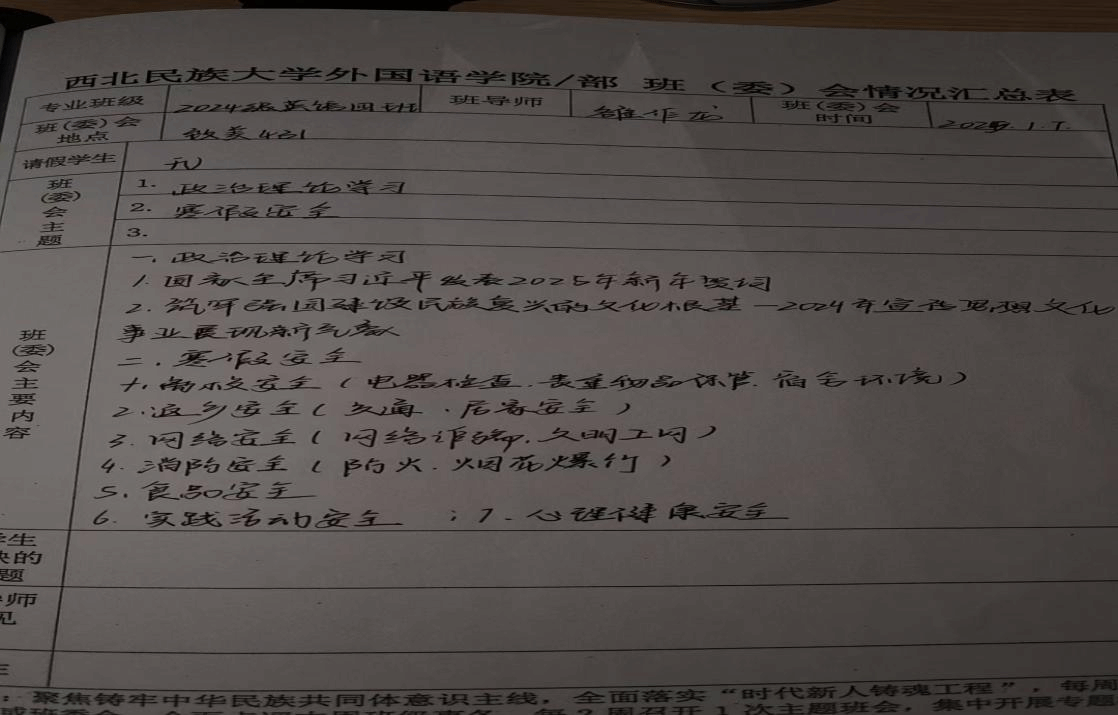 西北民族大学外国语学院/部 班（委）会情况汇总表
专业班级 2024级英语四班 班导师 雒作龙 班（委）会时间 2025.1.7.
班（委）会地点 致美431
请假学生 无
班（委）会主题
1. 政治理论学习
2. 寒假安全
3.
班（委）会主要内容
一、政治理论学习
1. 国家主席习近平发表2025年新年贺词
2. 筑牢强国建设民族复兴的文化根基—2024年宣传思想文化
事业展现新气象
二、寒假安全
1. 离校安全（电器检查、贵重物品保管、宿舍环境）
2. 返乡安全（交通、居家安全）
3. 网络安全（网络诈骗、文明上网）
4. 消防安全（防火、烟花爆竹）
5. 食品安全
6. 实践活动安全 ；7. 心理健康安全
生
的
题
师
见
：聚焦铸牢中华民族共同体意识主线，全面落实“时代新人铸魂工程”，每周
每2周召开1次主题班会，集中开展专题